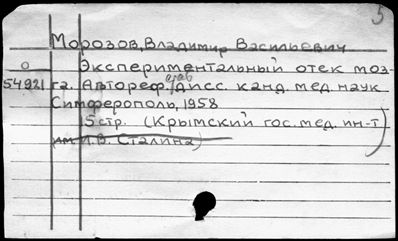 5
Морозов, Владимир Васильевич
О Экспериментальный отек моз-
54921 га. Автореф. дисс. канд. мед. наук
Симферополь, 1958
15 стр. (Крымский гос. мед. ин-т
им. И.В. Сталина)